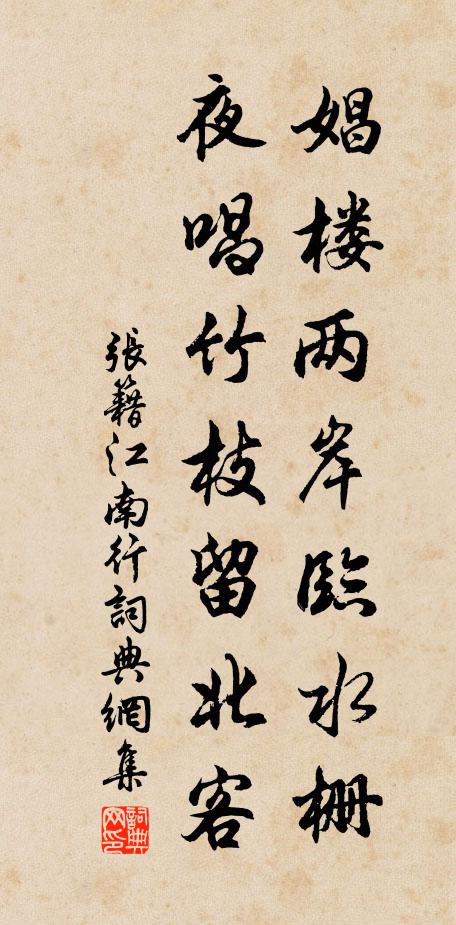 娼楼两岸臨水栅
夜唱竹枝留北客
張籍江南行詞典網集
詞典网印